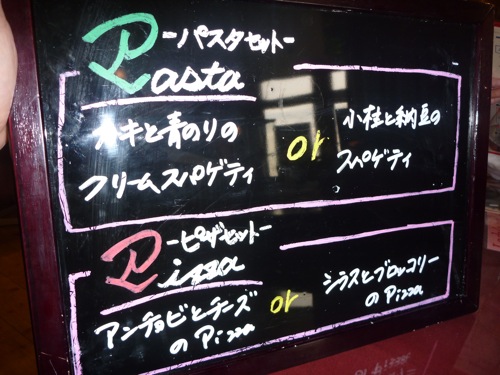 -パスタセット-
Pasta
カキと青のりの
クリームスパゲティ
or
小柱と納豆の
スパゲティ
-ピザセット-
Pizza
アンチョビとチーズ
のPizza
or
シラスとブロッコリー
のPizza